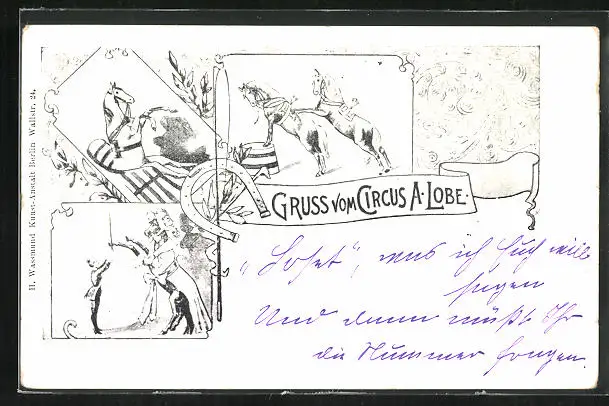 H. Wassmund Kunst-Anstalt Berlin Wallstr. 24.
GRUSS VOM CIRCUS A. LOBE.
was ich Euch will
sagen
Und dann müßt Ihr
die Nummer